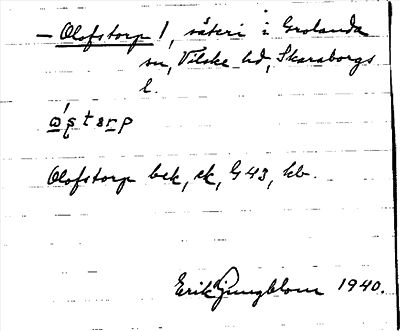 – Olofstorp 1, säteri i Grolanda
sn, Vilske hd, Skaraborgs
l.
Olofstorp bek, ek, G 43, kb.
Erik Ljungblom 1940.